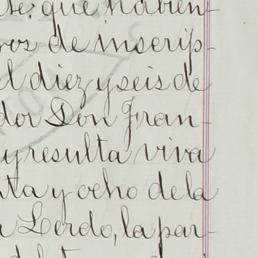 te: que habien-
ros de inscrip-
l diez y seis de
dor Don Fran-
y resulta viva
nta y ocho de la
a Lerdo, la par-